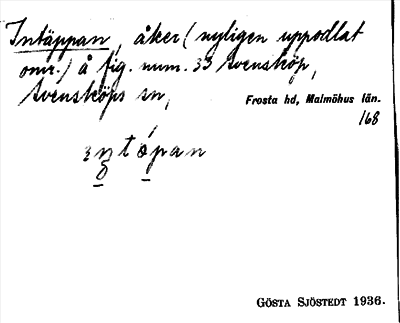 Intäppan, åker (nyligen uppodlat
omr.) å fig. num. 33 Svensköp,
Svensköps sn,
Frosta hd, Malmöhus län.
168
GÖSTA SJÖSTEDT 1936.